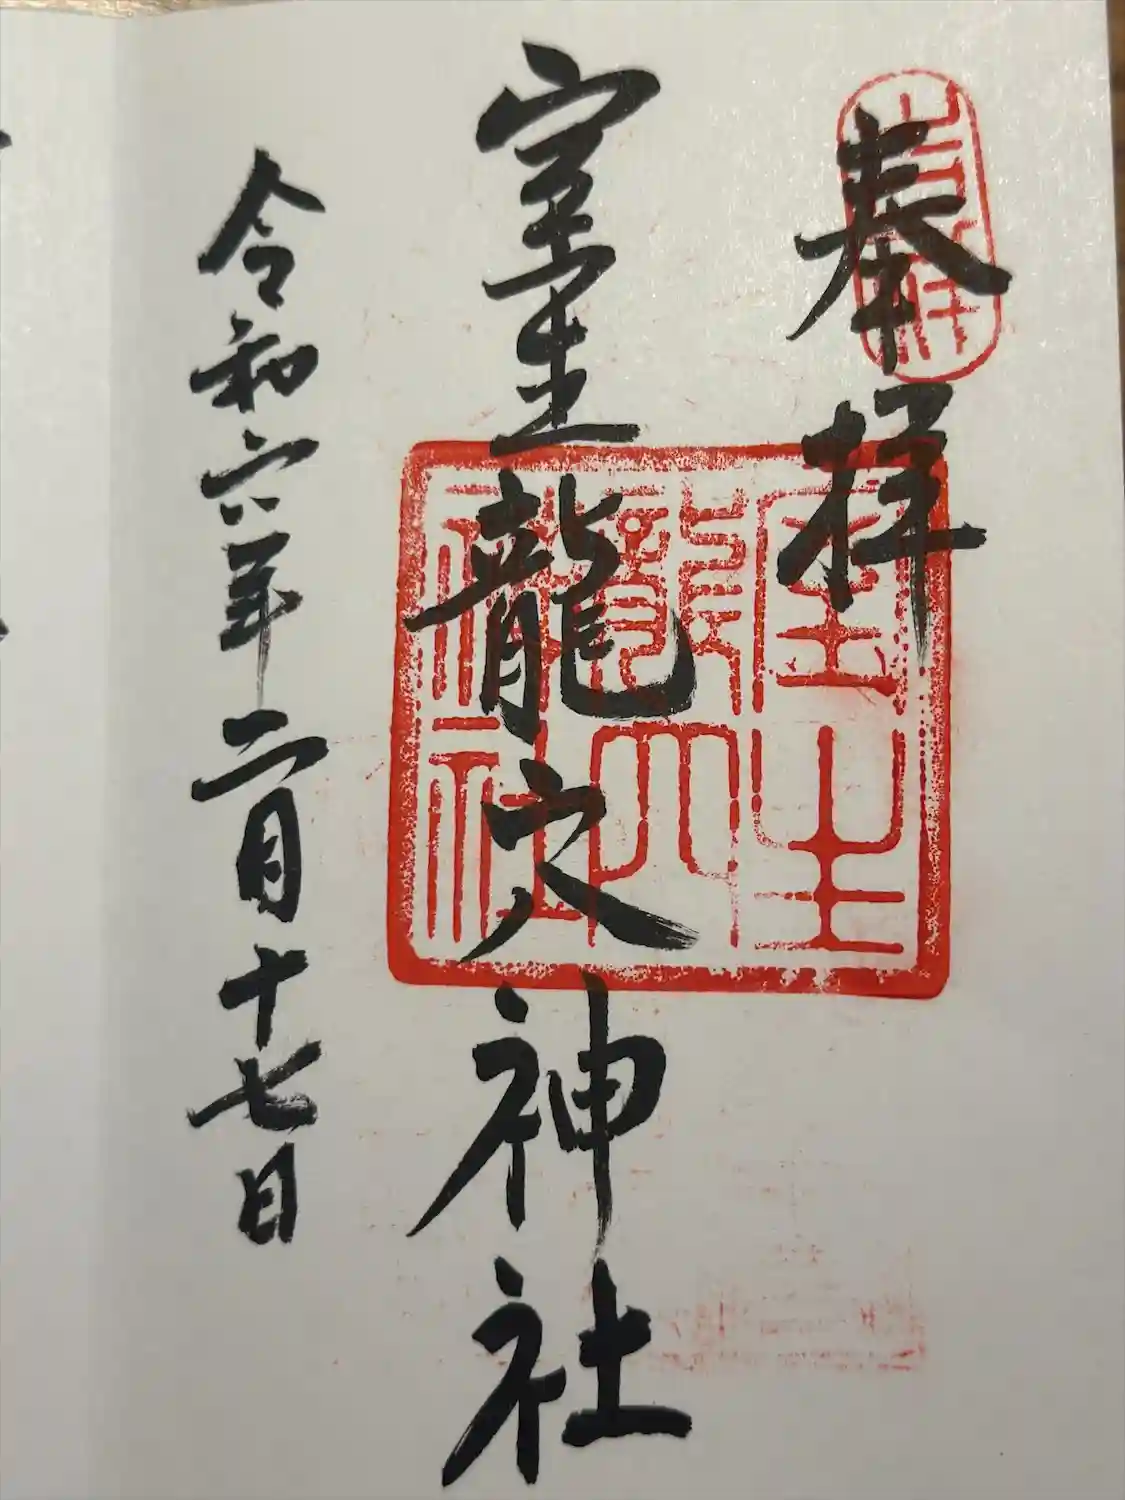 奉拝
室生龍穴神社
令和六年二月十七日
室生
龍穴
神社